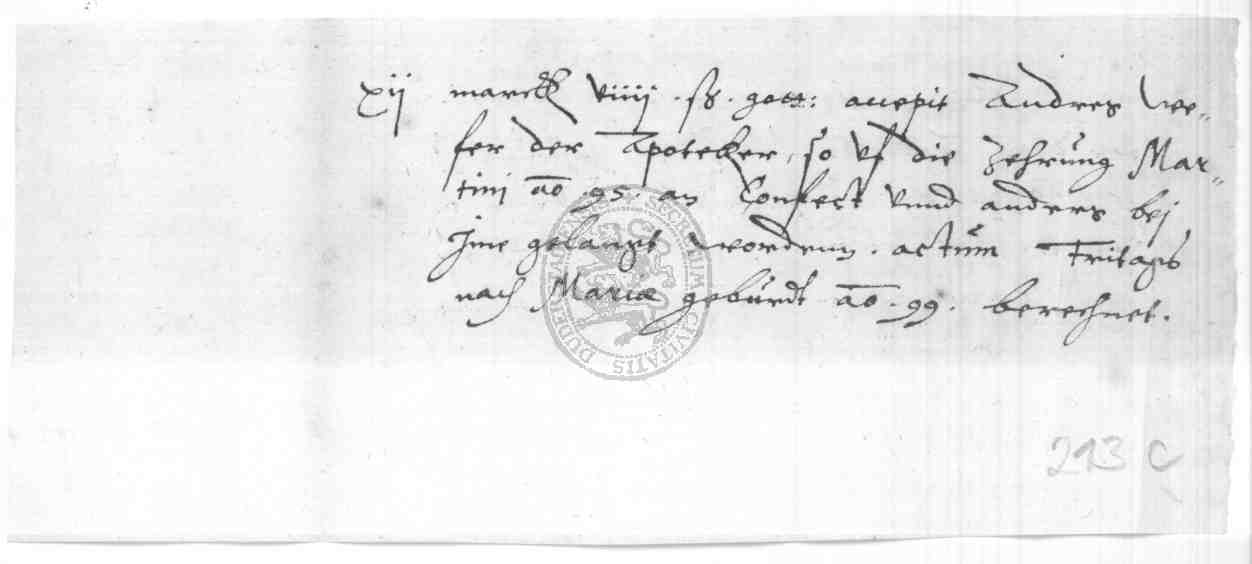 xij marck viiij . ß . gott: accepit Andres We„
ser der Apotecker, so vf die Zehrung Mar„
tini ao .95. an Confect vnnd anders bej
Jme gelangt worden . actum Fritags
nach Mariæ geburdt ao .99. berechnet.
SECRETUM CIVITATIS DUDER
213 C